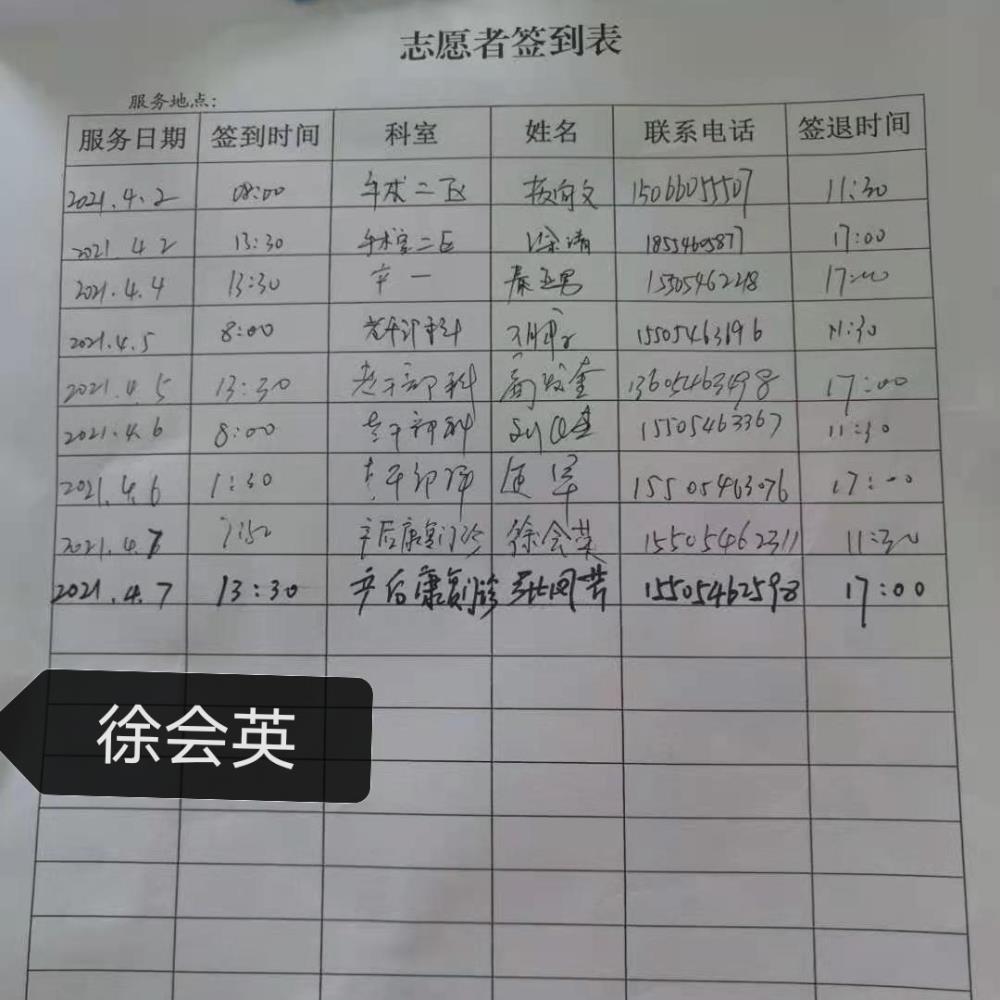 志愿者签到表
服务地点:
服务日期 签到时间 科室 姓名 联系电话 签退时间
2021.4.2 08:00 手术二区 15066055507 11:30
2021.4.2 13:30 手术室二区 徐清 18554605877 17:00
2021.4.4 13:30 产一 秦亚男 17:00
2021.4.5 8:00 老干部科 15505463196 11:30
2021.4.5 13:30 老干部科 13605463498 17:00
2021.4.6 8:00 老干部科 15505463367 11:30
2021.4.6 1:30 老干部科 15505463076 17:00
2021.4.7 7:50 产后康复门诊 徐会英 15505462311 11:30
2021.4.7 13:30 产后康复门诊 15505462598 17:00
徐会英